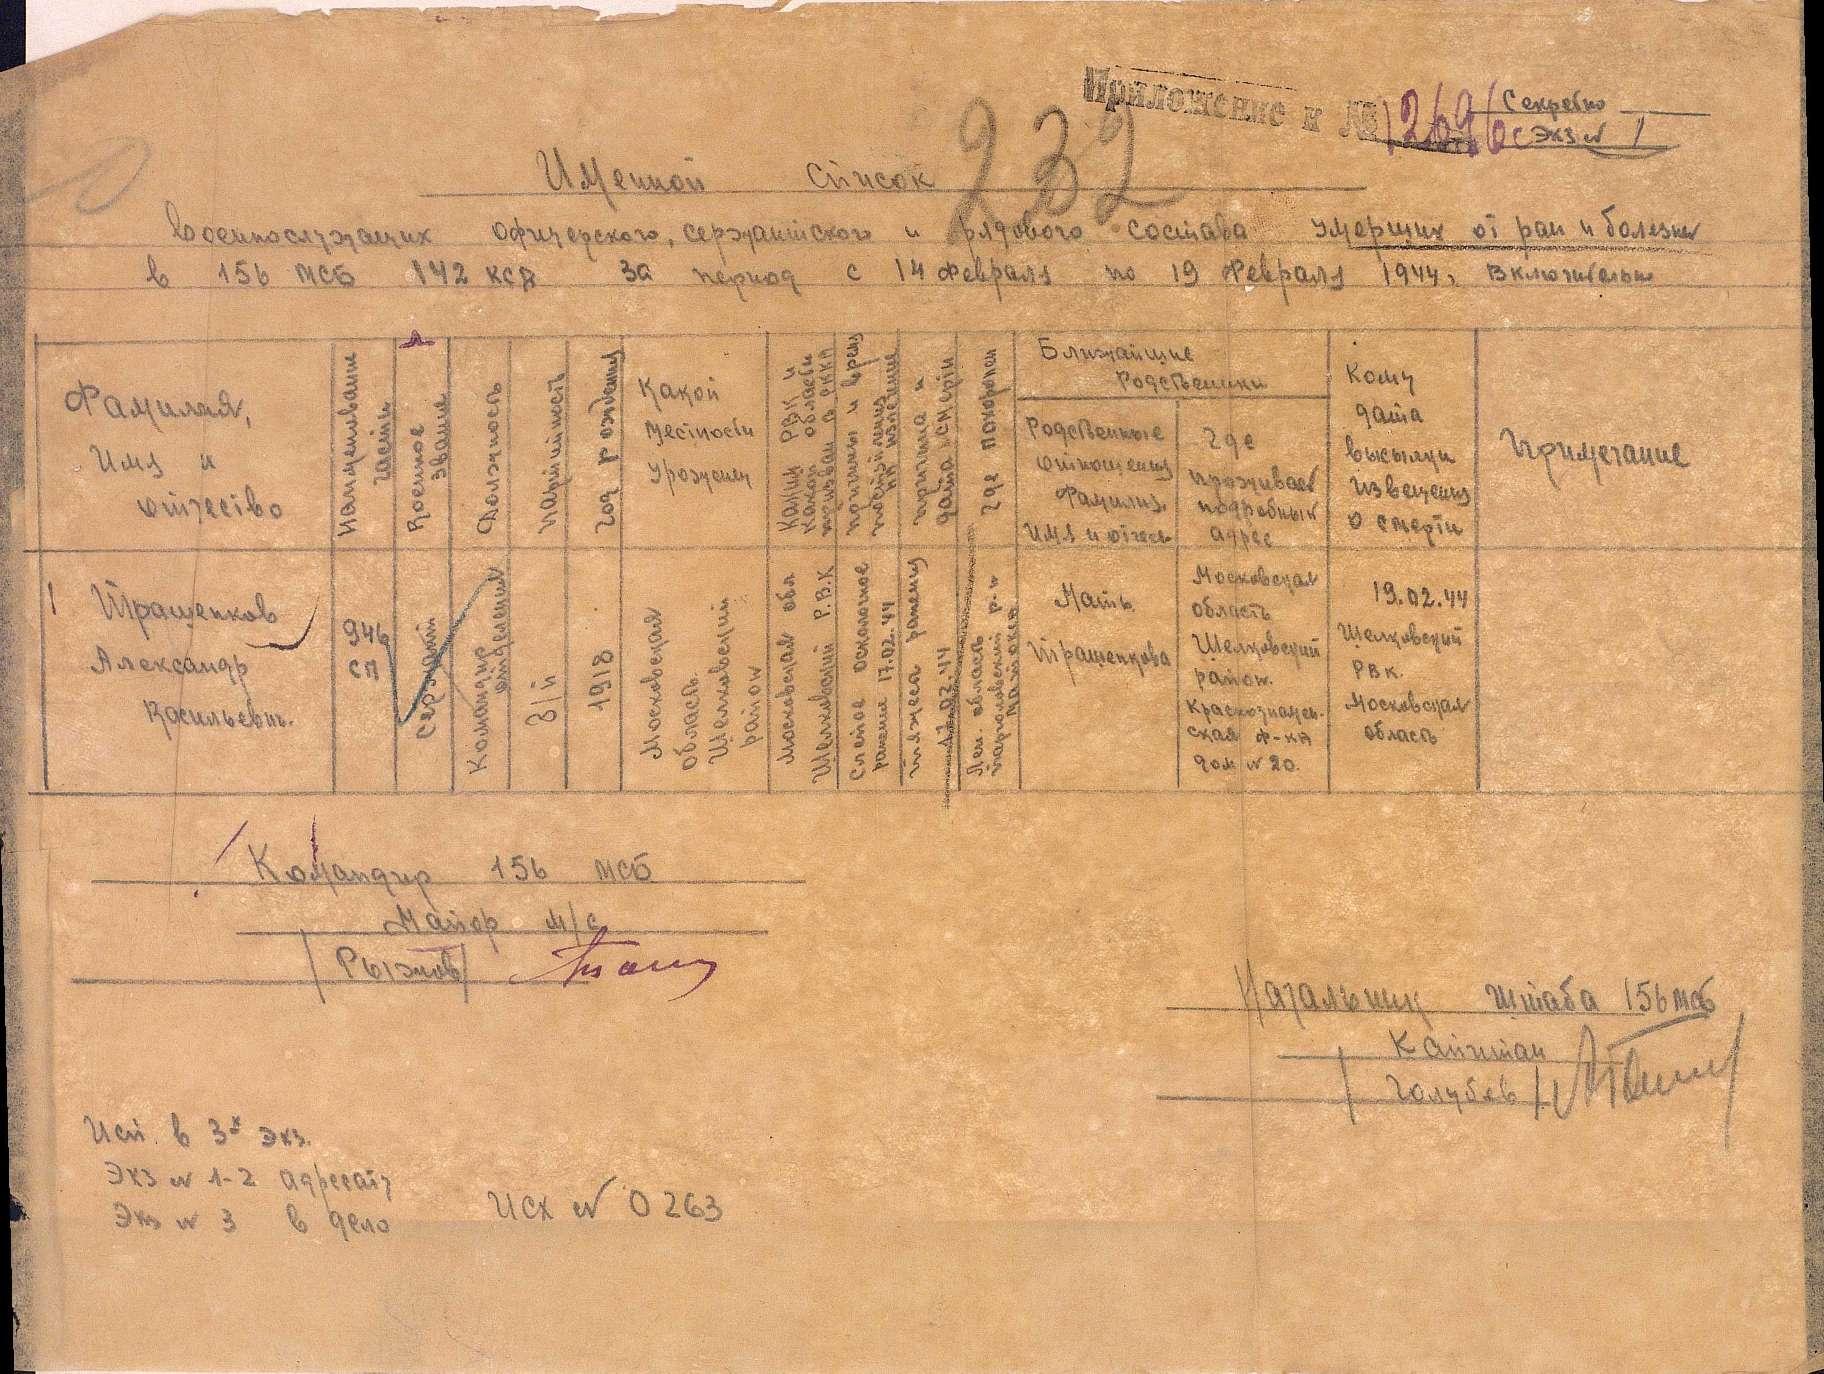 Приложение к № 12696с
Секретно
Экз № 1
232
Именной список
военнослужащих офицерского, сержантского и рядового состава умерших от ран и болезни
в 156 МСБ 142 КСД за период с 14 февраля по 19 февраля 1944г включительно
Фамилия,
Имя и
отчество
Наименование
части
Военное
звание
Должность
Партийность
Год рождения
Какой
местности
Уроженец
Каким РВК и
какой области
призван в РККА
причины и время
поступления
на излечение
причина и
дата смерти
где похоронен
Ближайшие
родственники
Родственные
отношения
Фамилия,
имя и отчес.
где
проживает
подробный
адрес
Кому
дата
высылки
извещения
о смерти
Примечание
1 Тращенков
Александр
Васильевич.
946
СП
Сержант
Командир
отделения
б/п
1918
Московская
область
Щелковский
район
Московская обл
Щелковский Р.В.К
Слепое осколочное
ранение 17.02.44
тяжелое ранение
17.02.44
Лен. область
р-н
Мать
Тращенкова
Московская
область
Щелковский
район.
Краснознамен-
ская ф-ка
дом № 20.
19.02.44
Щелковский
РВК.
Московская
область
Командир 156 МСБ
Майор м/с
/Рыжов/
Начальник штаба 156 МСБ
Капитан
/Голубев/
Исп. в 3х экз.
Экз № 1-2 адресату
Экз № 3 в дело
Исх № 0263